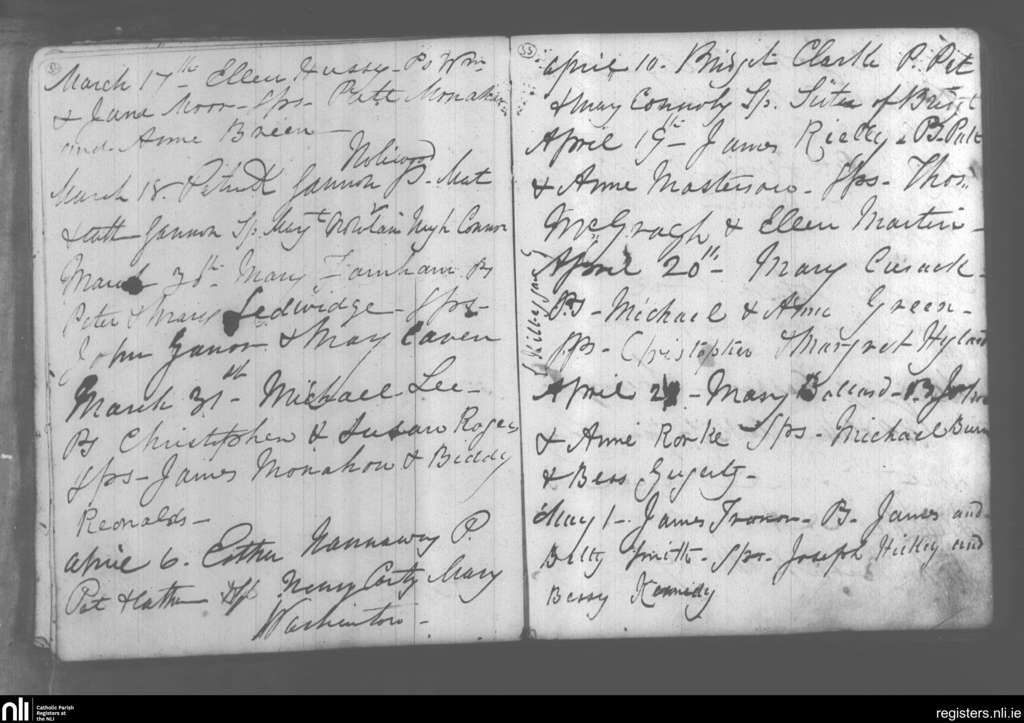 March 17th Ellen Hussy - Ps Wm
& Jane Moor - Sps - Patt Monahan
and Anne Breen -
March 18. Patrick Gannon Ps - Mat
& Cath Gannon Sp. Hugh Connor
March 30th Mary Farnham Ps
Peter & Mary Ledwidge - Sps -
John Ganon & May Caven
March 31st - Michael Lee -
Ps Christopher & Susan Rogers
Sps - James Monahon & Biddy
Reonalds -
April 6. Esther Hannaway P.
Pat & Cath Sp. Henry Carty Mary
Washinton -
55
April 10. Bridget Clarke P. Pat
& May Connoly Sp. Sister of Bridgt
April 19th - James Rielly - Ps. Patt
& Anne Masterson - Sps - Thos
McGragh & Ellen Martin -
April 20th - Mary Cusack -
Ps - Michael & Anne Green -
Sps - Christopher & Margret Hyland
April - Mary Ballard - Ps John
& Anne Rorke Sps - Michael Burn
& Bess
May 1 - James Tronor - Ps - James and
Betty Smith - Sps. Joseph Hickey and
Bessy Kennidy
nli
Catholic Parish
Registers at
the NLI
registers.nli.ie